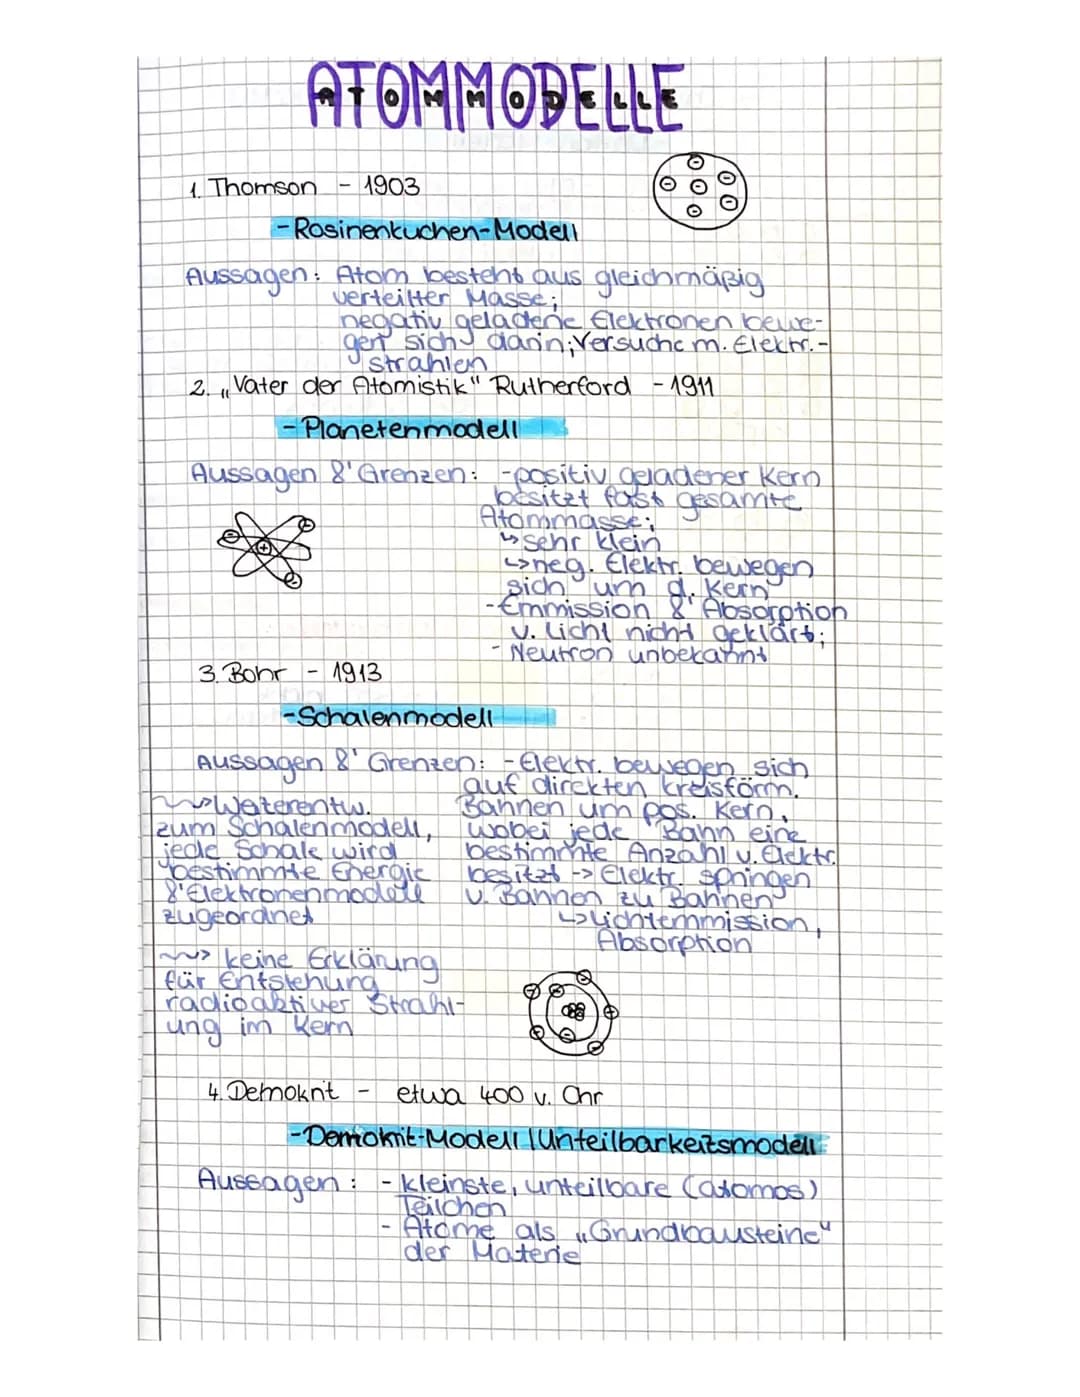 ATOMMODELLE
1. Thomson - 1903
- Rosinenkuchen-Modell
Aussagen: Atom besteht aus gleichmäßig
verteilter Masse;
negativ geladene Elektronen bewe-
gen sich darin; Versuche m. Elektr.-
strahlen
2. „Vater der Atomistik" Rutherford - 1911
- Planetenmodell
Aussagen & Grenzen: - positiv geladener Kern
besitzt fast gesamte
Atommasse;
↳ sehr klein
↳ neg. Elektr. bewegen
sich um d. Kern
- Emmission & Absorption
v. Licht nicht geklärt;
- Neutron unbekannt
3. Bohr - 1913
- Schalenmodell
Aussagen & Grenzen: - Elektr. bewegen sich
auf direkten kreisförm.
Bahnen um pos. Kern,
wobei jede Bahn eine
bestimmte Anzahl v. Elektr.
besitzt -> Elektr. springen
v. Bahnen zu Bahnen
↳ Lichtemmission,
Absorption
~> Weiterentw.
zum Schalenmodell,
jede Schale wird
bestimmte Energie
& Elektronenmodell
zugeordnet
~> keine Erklärung
für Entstehung
radioaktiver Strahl-
ung im Kern
4. Demokrit - etwa 400 v. Chr
- Demokrit-Modell | Unteilbarkeitsmodell
Aussagen: - kleinste, unteilbare (atomos)
Teilchen
- Atome als „Grundbausteine"
der Materie